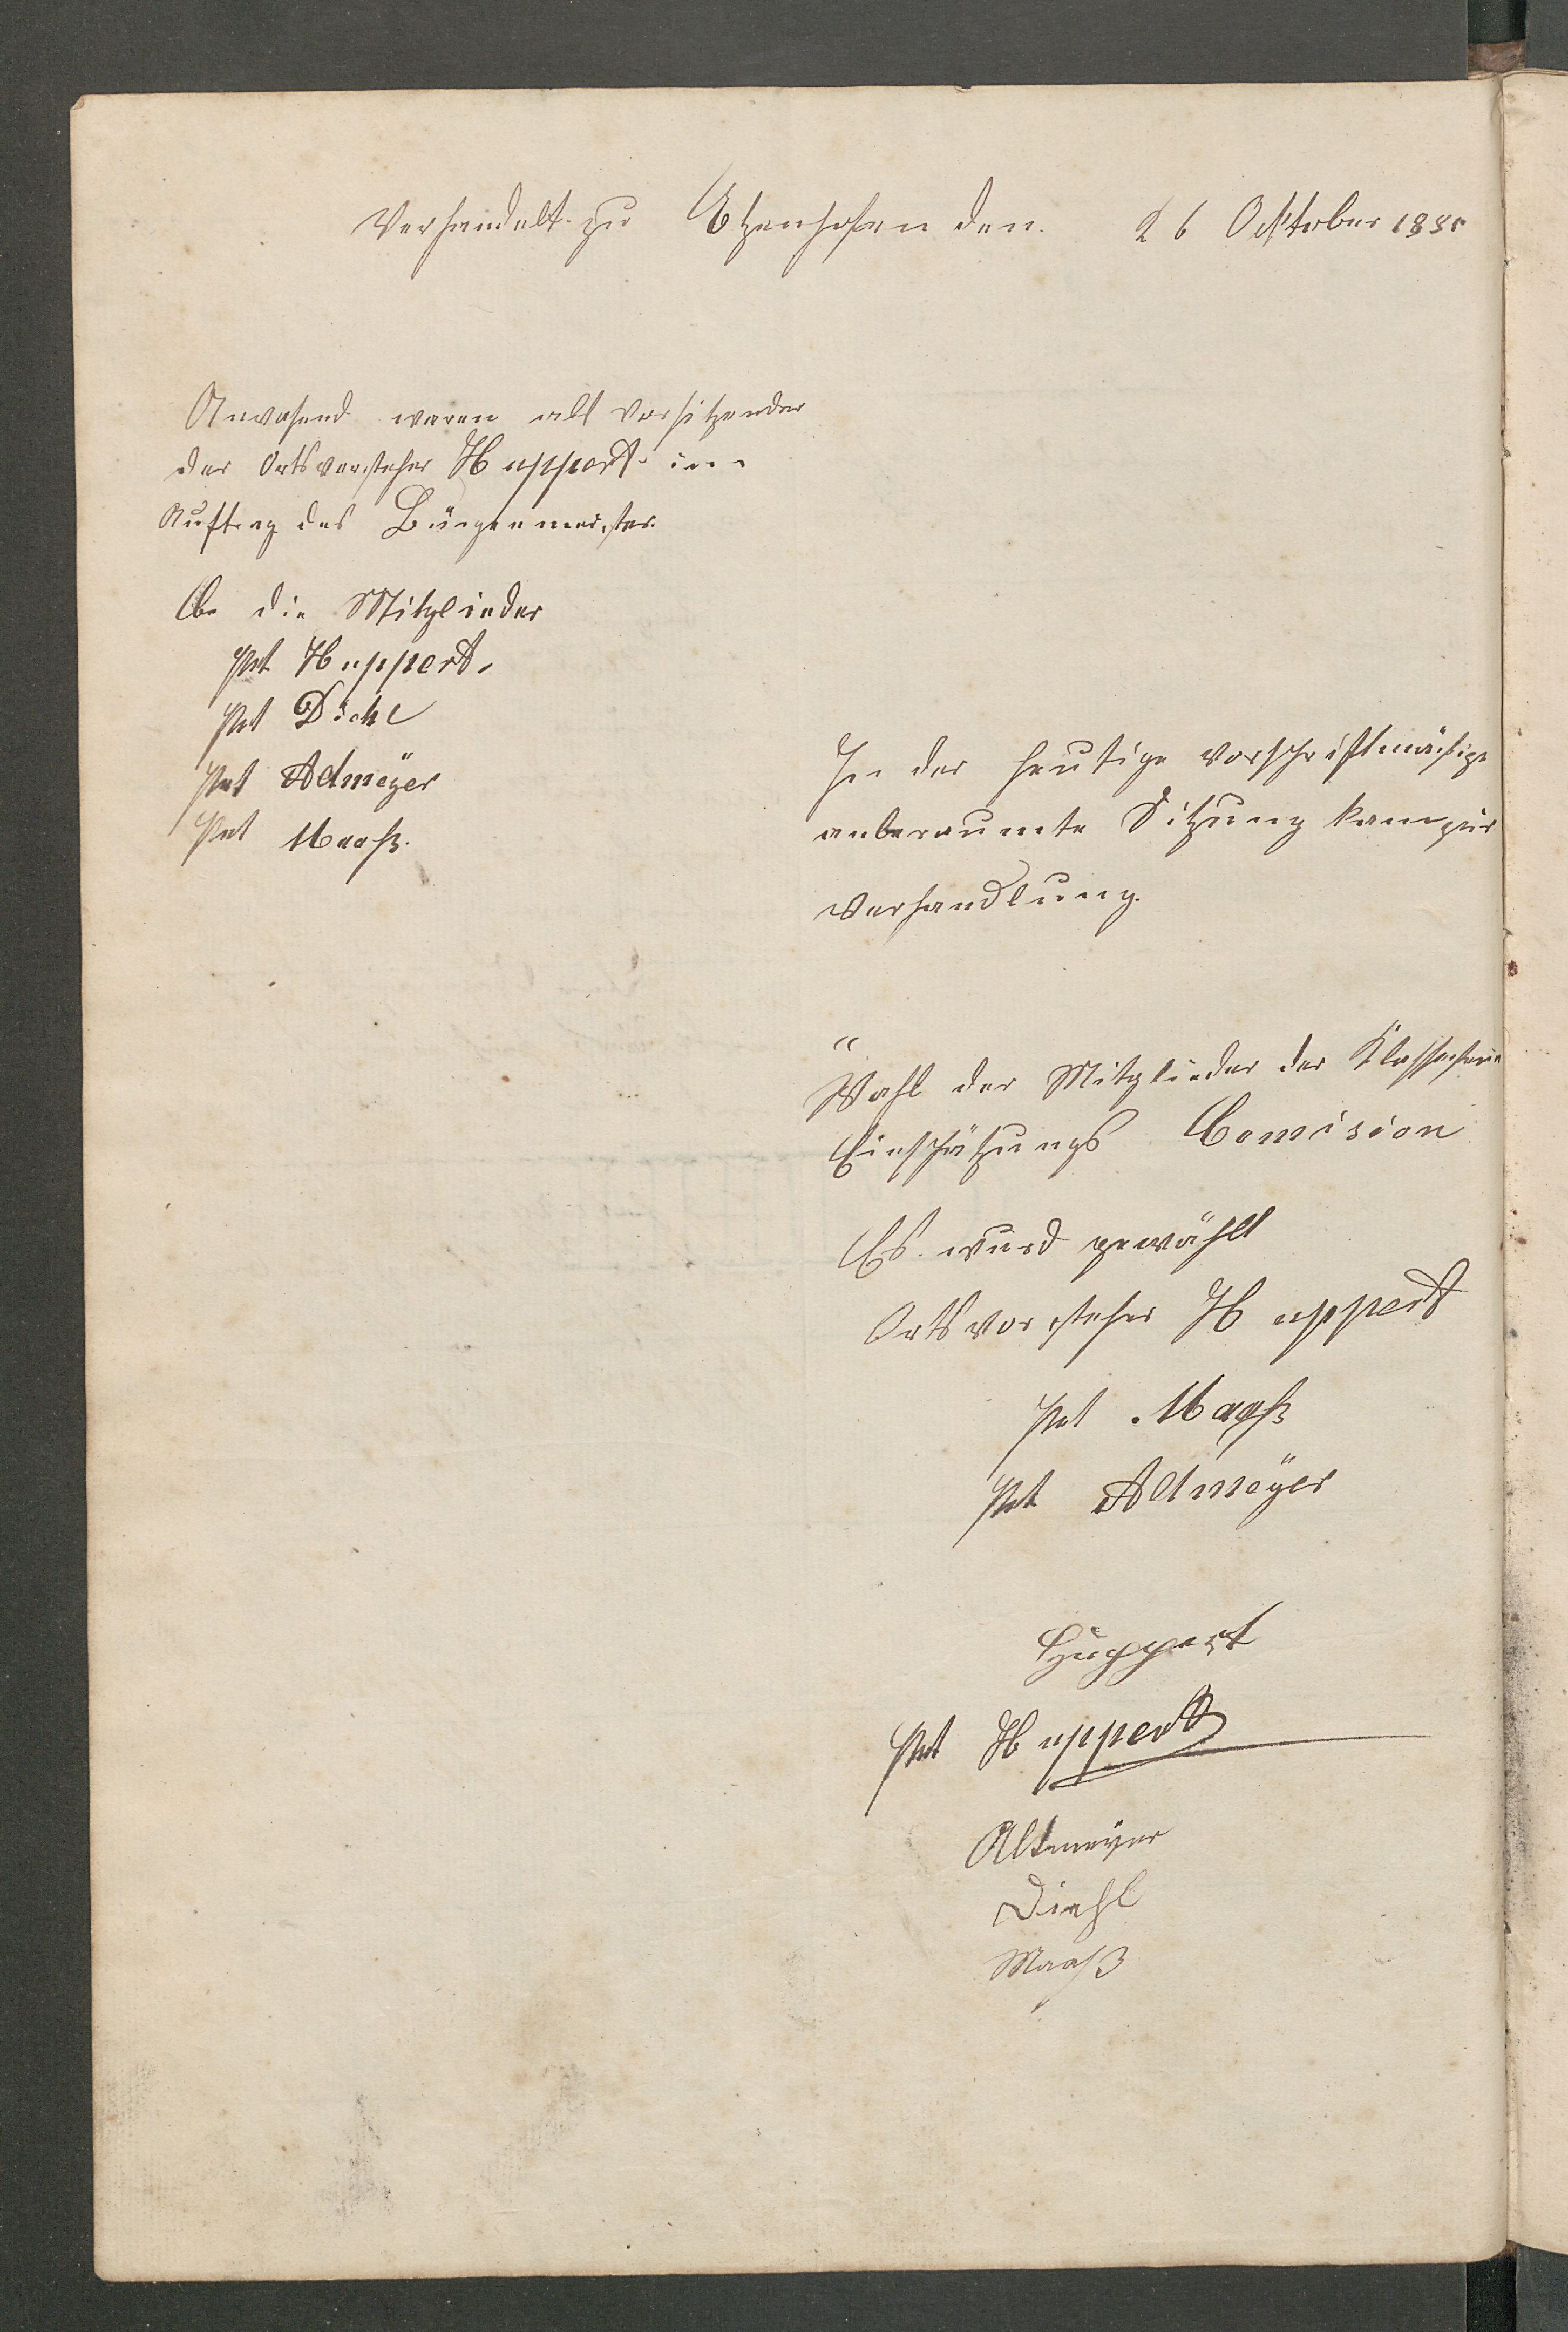 Verhandelt zu Etzenhofen den 26 Ocktober 1885
Anwesend waren als Vorsitzender
der Ortsvorsteher Huppert im
Auftrag des Bürgermeister
die Mitglieder
Pet Huppert
Pet Diehl
Pet Altmeÿer
Pet Maaß.
In der heutige vorschriftmäßige
anberaumte Sitzung kam zur
Verhandlung.
Wahl der Mitglieder der
Einschätzungs Comision
Es wurd gewählt
Ortsvorsteher Huppert
Pet Maaß
Pet Altmeÿer
Huppert
Pet Huppert
Altmeyer
Diehl
Maaß